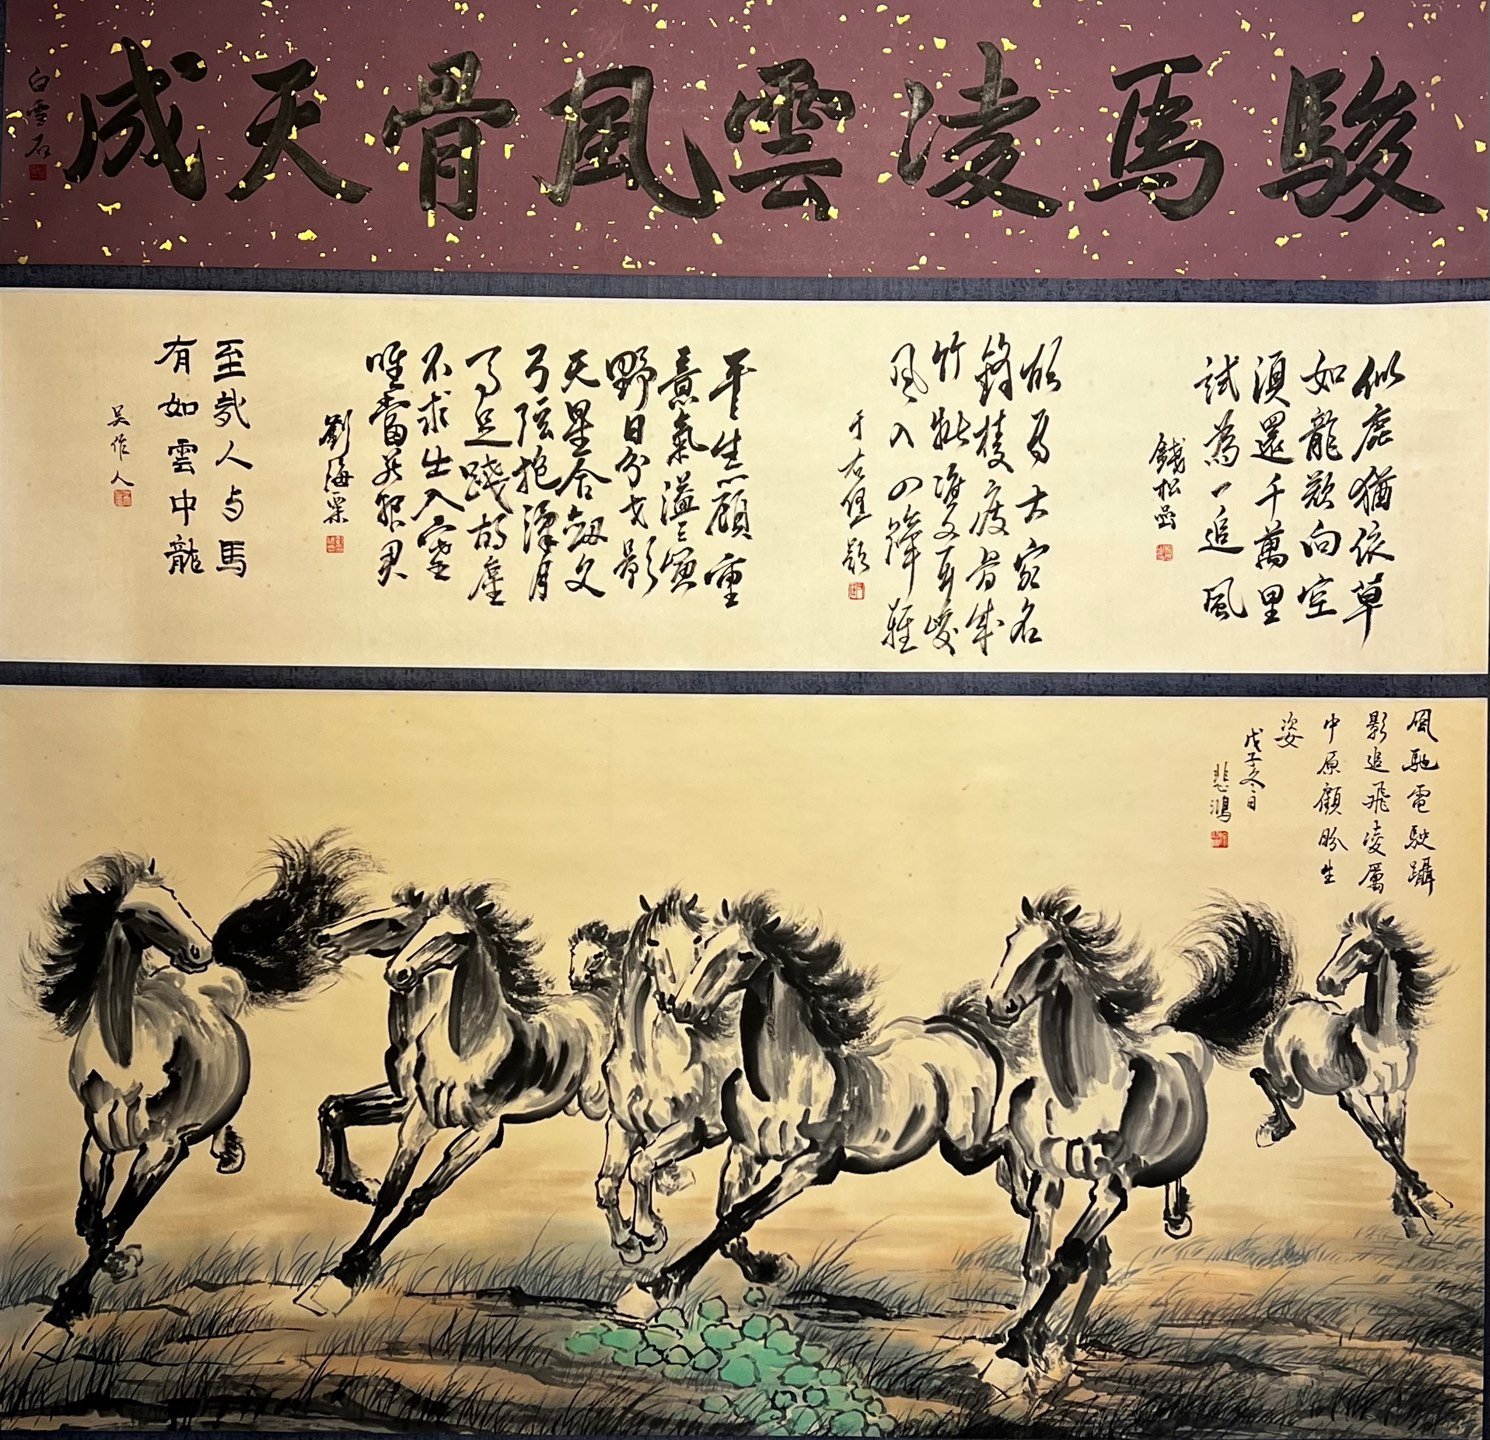 駿馬凌雲風骨天成
白雪石
似鹿猶依草
如龍欲向空
須還千萬里
試為一追風
錢松喦
胡馬大宛名
鋒棱瘦骨成
竹批雙耳峻
風入四蹄輕
于右任題
平生懷顧重
意氣溢三邊
野日分戈影
天星合劍文
弓弦抱漢月
馬足踐胡塵
不求生入塞
唯當死報君
劉海粟
至哉人与馬
有如雲中龍
吴作人
風馳電駛躡
影追飛凌厲
中原顧盼生
姿
戊子冬日
悲鴻